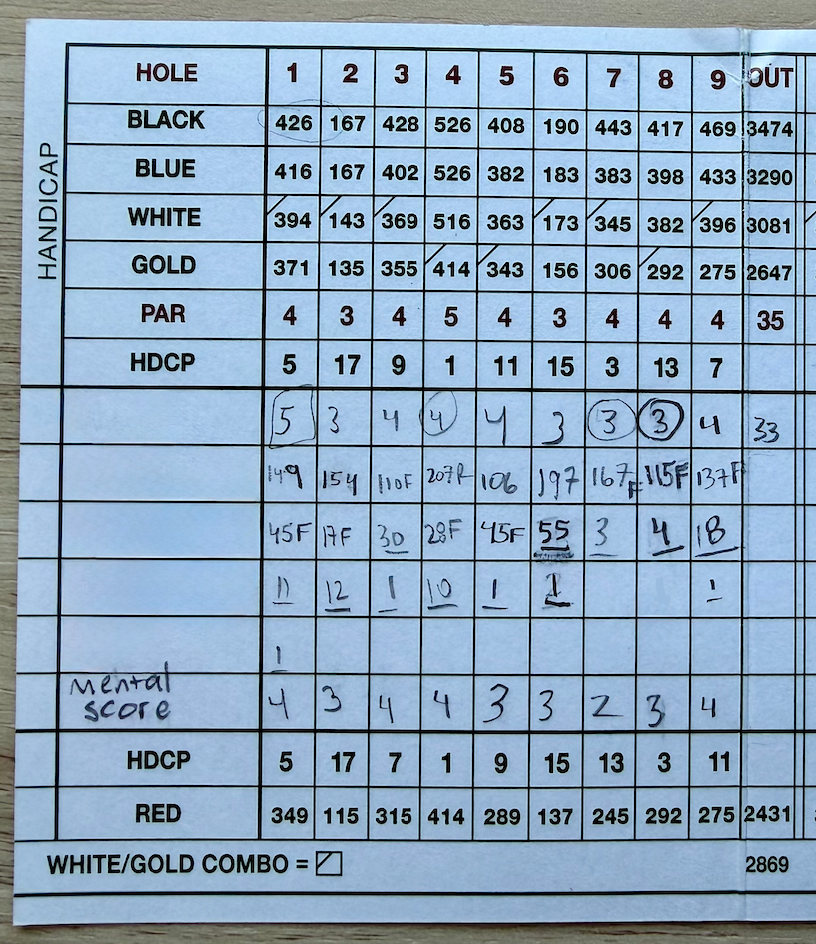 HANDICAP
HOLE 1 2 3 4 5 6 7 8 9 OUT
BLACK 426 167 428 526 408 190 443 417 469 3474
BLUE 416 167 402 526 382 183 383 398 433 3290
WHITE 394 143 369 516 363 173 345 382 396 3081
GOLD 371 135 355 414 343 156 306 292 275 2647
PAR 4 3 4 5 4 3 4 4 4 35
HDCP 5 17 9 1 11 15 3 13 7
5 3 4 4 4 3 3 3 4 33
149 154 110F 207R 106 197 167F 115F 137F
45F 17F 30 28F 45F 55 3 4 18
11 12 1 10 1 1 1
1
mental score 4 3 4 4 3 3 2 3 4
HDCP 5 17 7 1 9 15 13 3 11
RED 349 115 315 414 289 137 245 292 275 2431
WHITE/GOLD COMBO = 2869